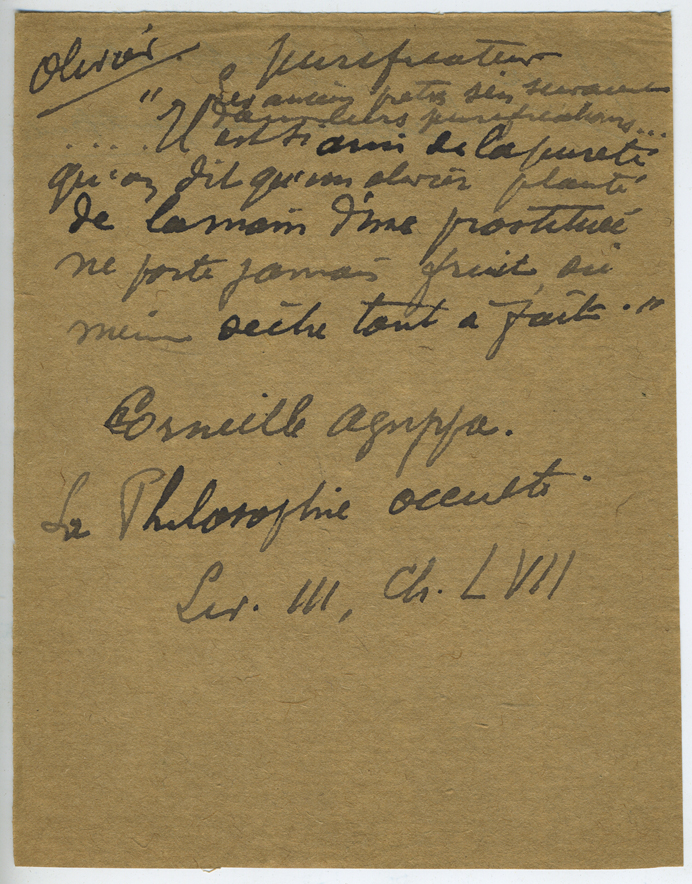 Olivier.
purificateur
Les anciens prêtres s'en servaient
dans leurs purifications...
"..... Il est si ami de la pureté
qu'on dit qu'un olivier planté
de la main d'une prostituée
ne porte jamais fruit, ou
même sèche tout à fait."
Corneille Agrippa.
La Philosophie occulte.
Liv. III, Ch. LVIII